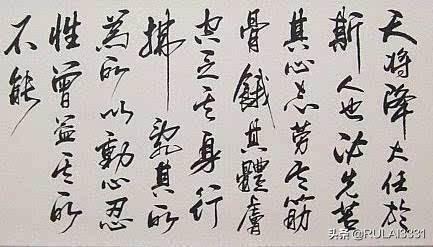 天将降大任於
斯人也必先苦
其心志劳其筋
骨餓其體膚
空乏其身行
拂亂其所
為所以動心忍
性曾益其所
不能
头条 @RULAI3331